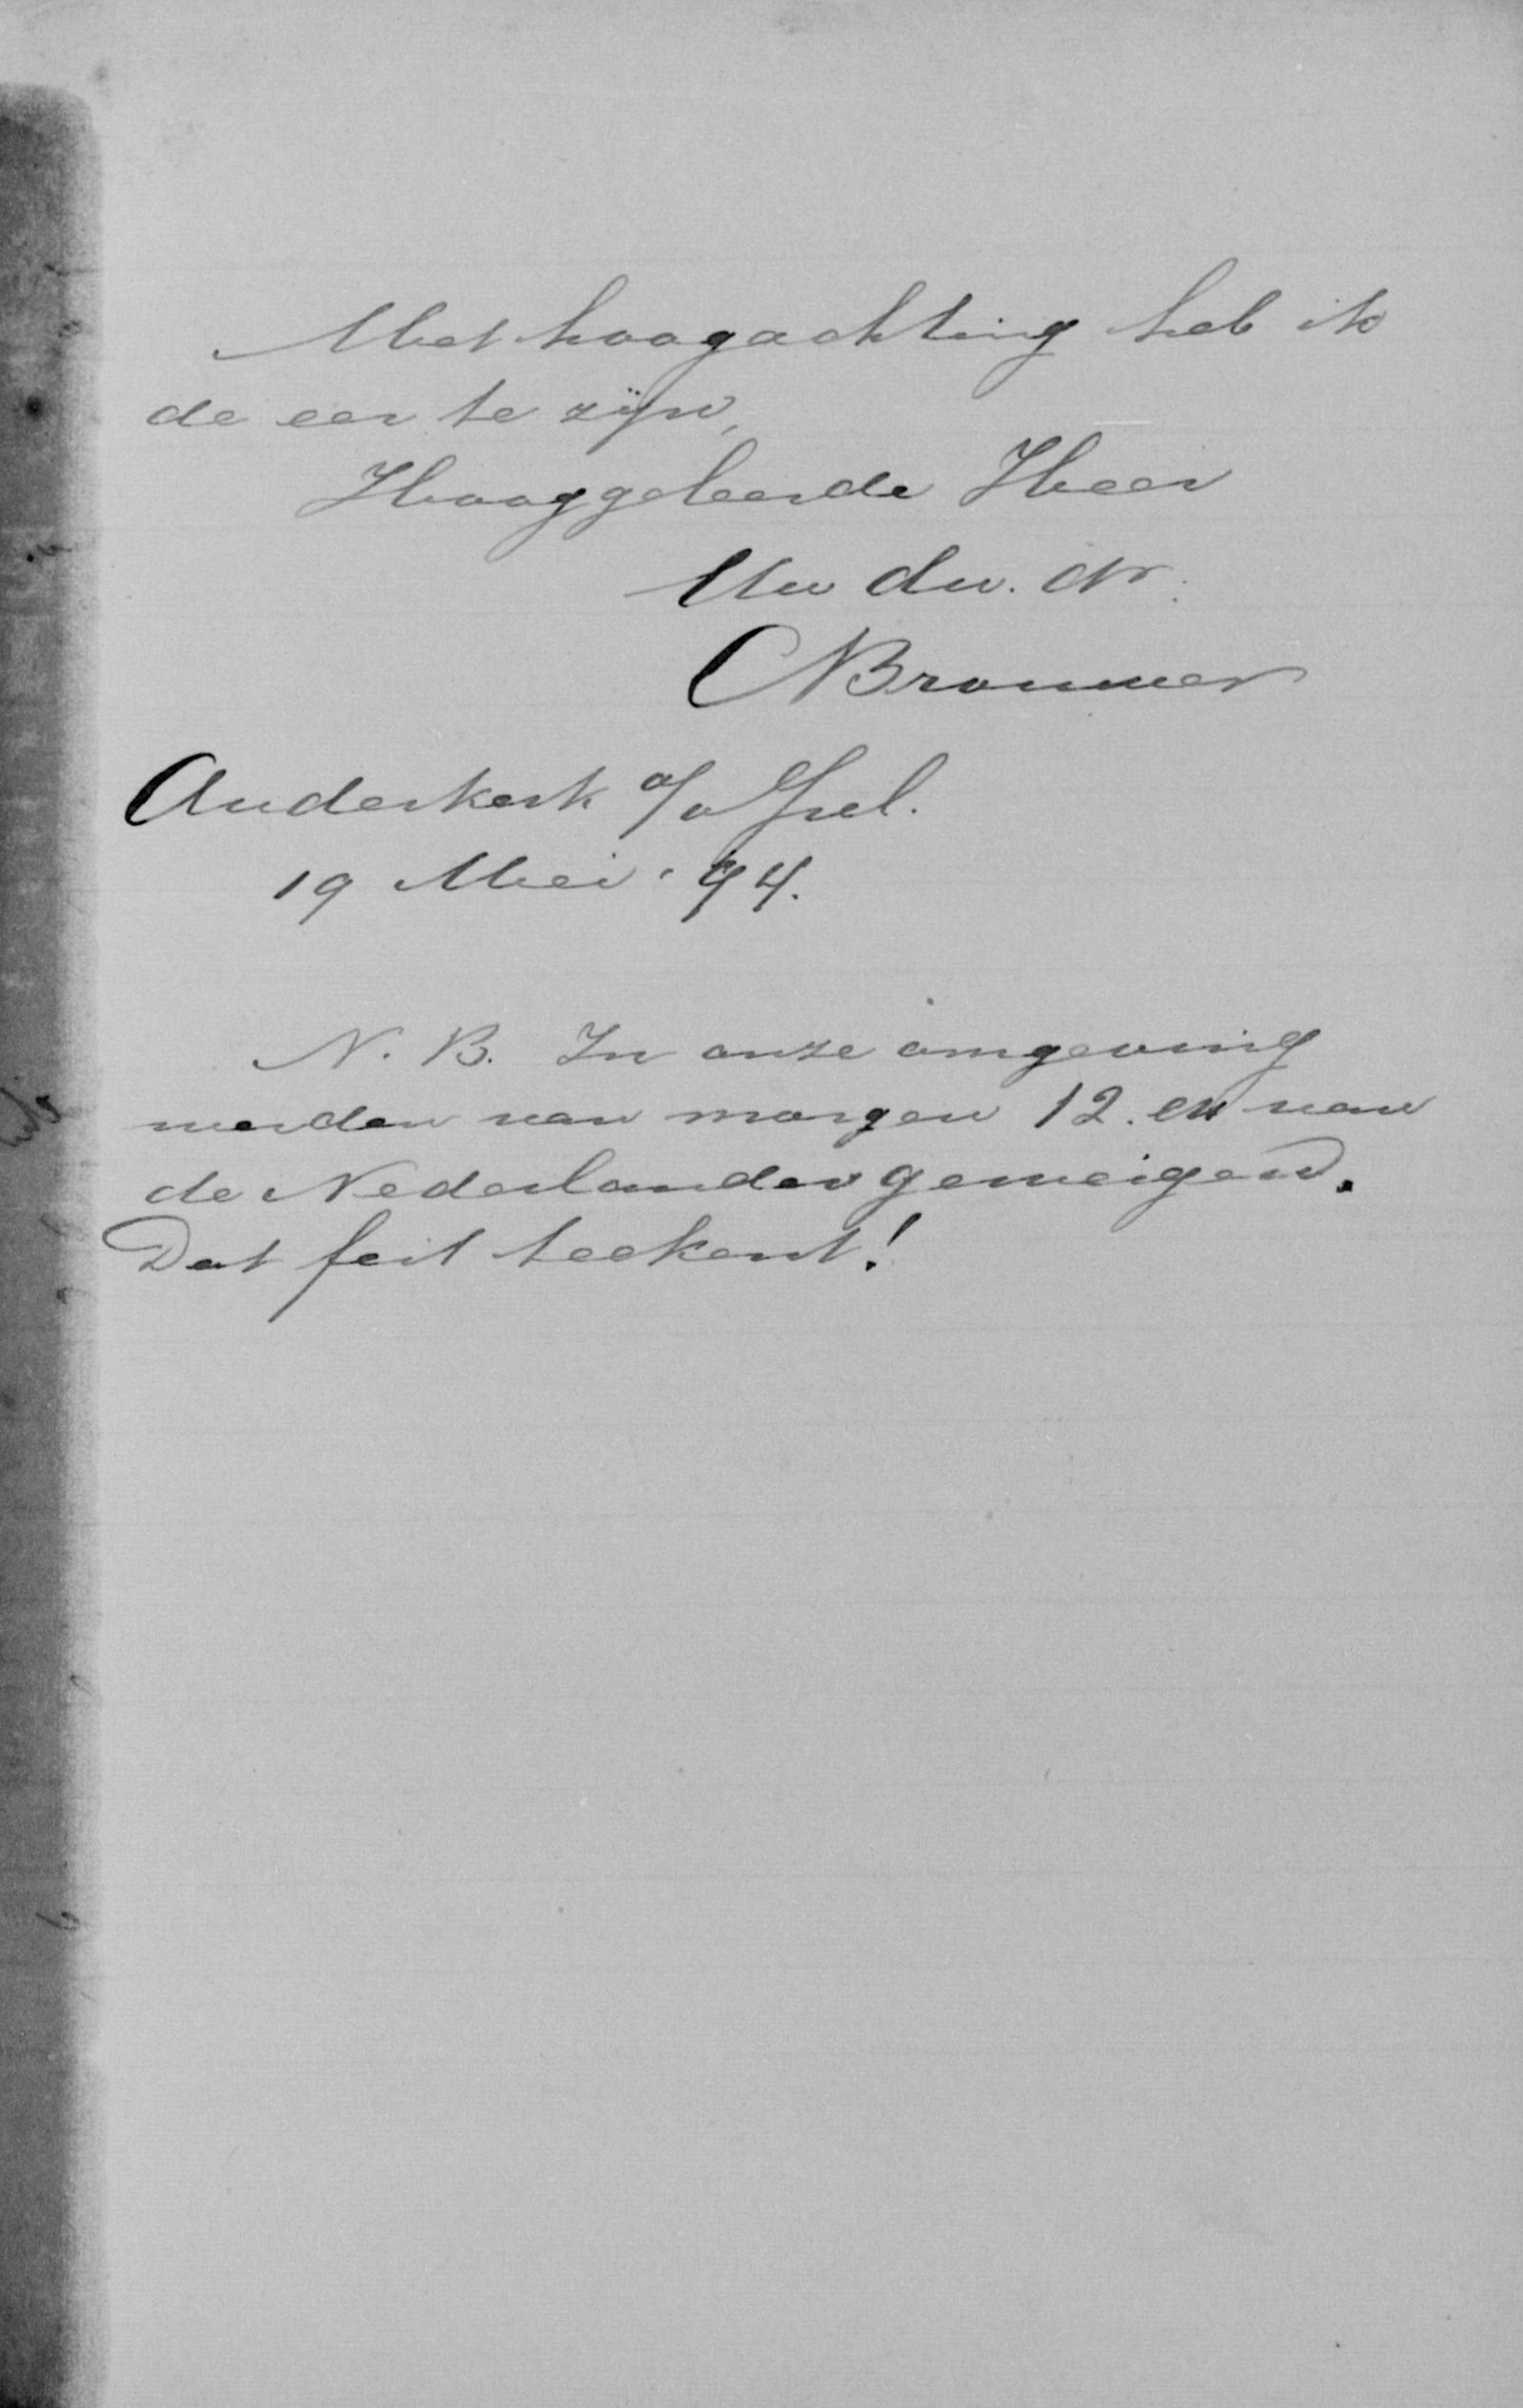 Met hoogachting heb ik
de eer te zijn,
Hooggeleerde Heer
Uw dw. dr.
CNBrouwer
Ouderkerk a/d IJsel.
19 Mei '94.
N. B. In onze omgeving
werden van morgen 12. exx van
de Nederlander geweigerd.
Dat feit teekent!